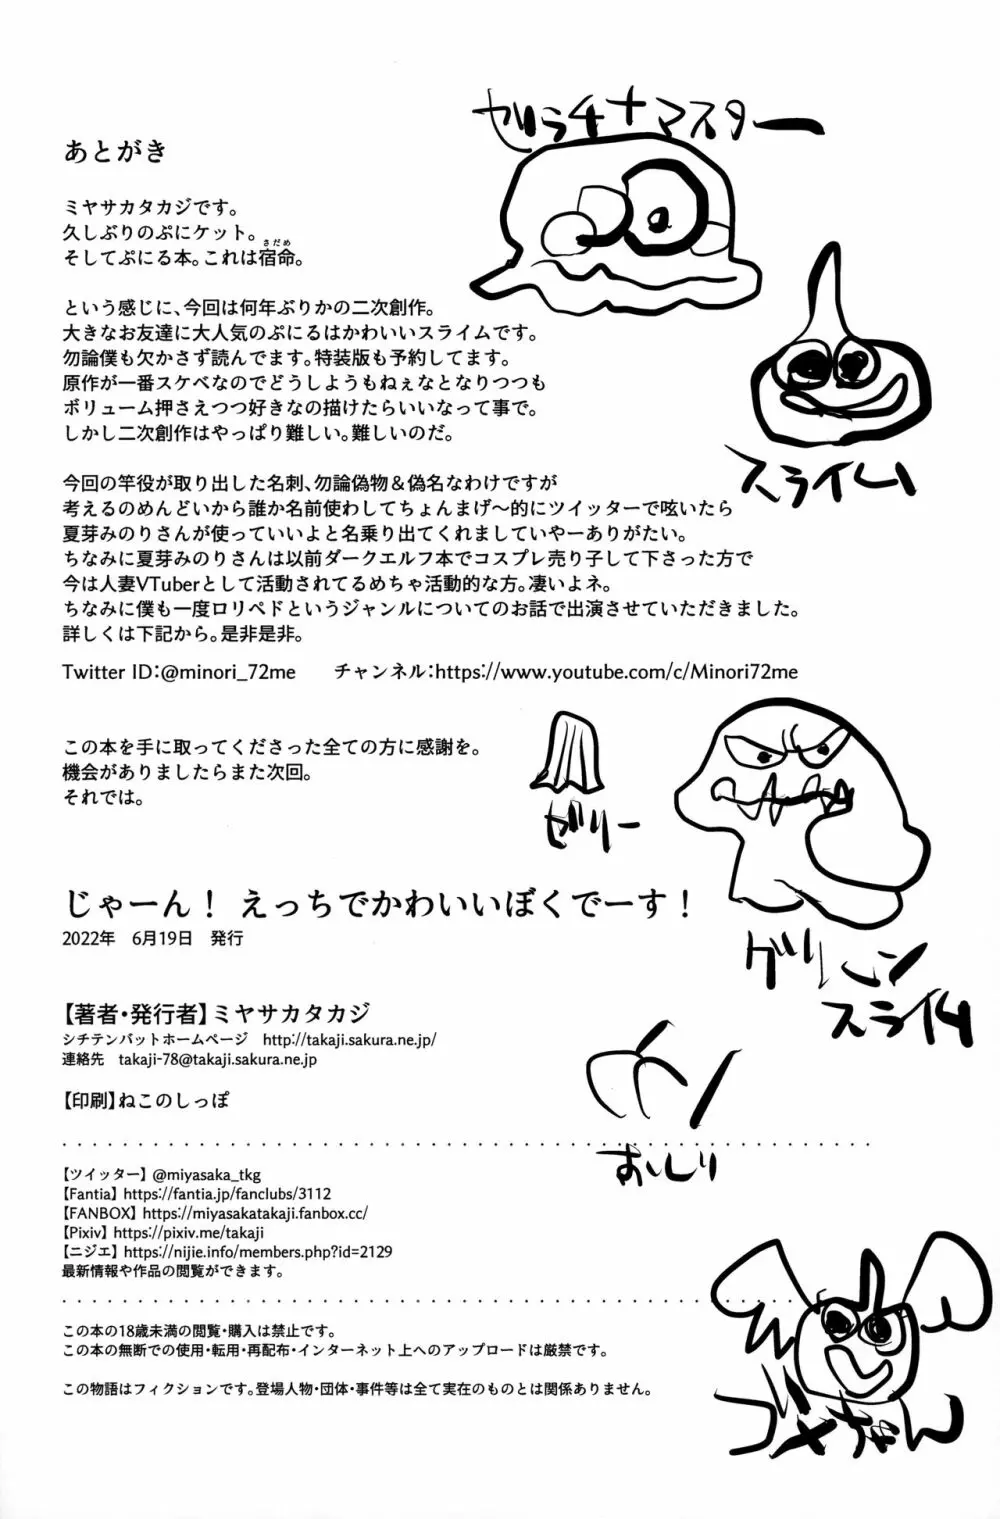 あとがき
ミヤサカタカジです。
久しぶりのぷにケット。
さだめ
そしてぷにる本。これは宿命。
という感じに、今回は何年ぶりかの二次創作。
大きなお友達に大人気のぷにるはかわいいスライムです。
勿論僕も欠かさず読んでます。特装版も予約してます。
原作が一番スケベなのでどうしようもねぇなとなりつつも
ボリューム押さえつつ好きなの描けたらいいなって事で。
しかし二次創作はやっぱり難しい。難しいのだ。
今回の竿役が取り出した名刺、勿論偽物＆偽名なわけですが
考えるのめんどいから誰か名前使わしてちょんまげ〜的にツイッターで呟いたら
夏芽みのりさんが使っていいよと名乗り出てくれましていやーありがたい。
ちなみに夏芽みのりさんは以前ダークエルフ本でコスプレ売り子して下さった方で
今は人妻VTuberとして活動されてるめちゃ活動的な方。凄いよネ。
ちなみに僕も一度ロリペドというジャンルについてのお話で出演させていただきました。
詳しくは下記から。是非是非。
Twitter ID：@minori_72me　チャンネル：https://www.youtube.com/c/Minori72me
この本を手に取ってくださった全ての方に感謝を。
機会がありましたらまた次回。
それでは。
じゃーん！ えっちでかわいいぼくでーす！
2022年　6月19日　発行
【著者・発行者】ミヤサカタカジ
シチテンバットホームページ　http://takaji.sakura.ne.jp/
連絡先　takaji-78@takaji.sakura.ne.jp
【印刷】ねこのしっぽ
【ツイッター】@miyasaka_tkg
【Fantia】https://fantia.jp/fanclubs/3112
【FANBOX】https://miyasakatakaji.fanbox.cc/
【Pixiv】https://pixiv.me/takaji
【ニジエ】https://nijie.info/members.php?id=2129
最新情報や作品の閲覧ができます。
この本の18歳未満の閲覧・購入は禁止です。
この本の無断での使用・転用・再配布・インターネット上へのアップロードは厳禁です。
この物語はフィクションです。登場人物・団体・事件等は全て実在のものとは関係ありません。
ゼラチナマスター
スライム
ゼリー
グリーン
スライム
おいしり
ゴメちゃん